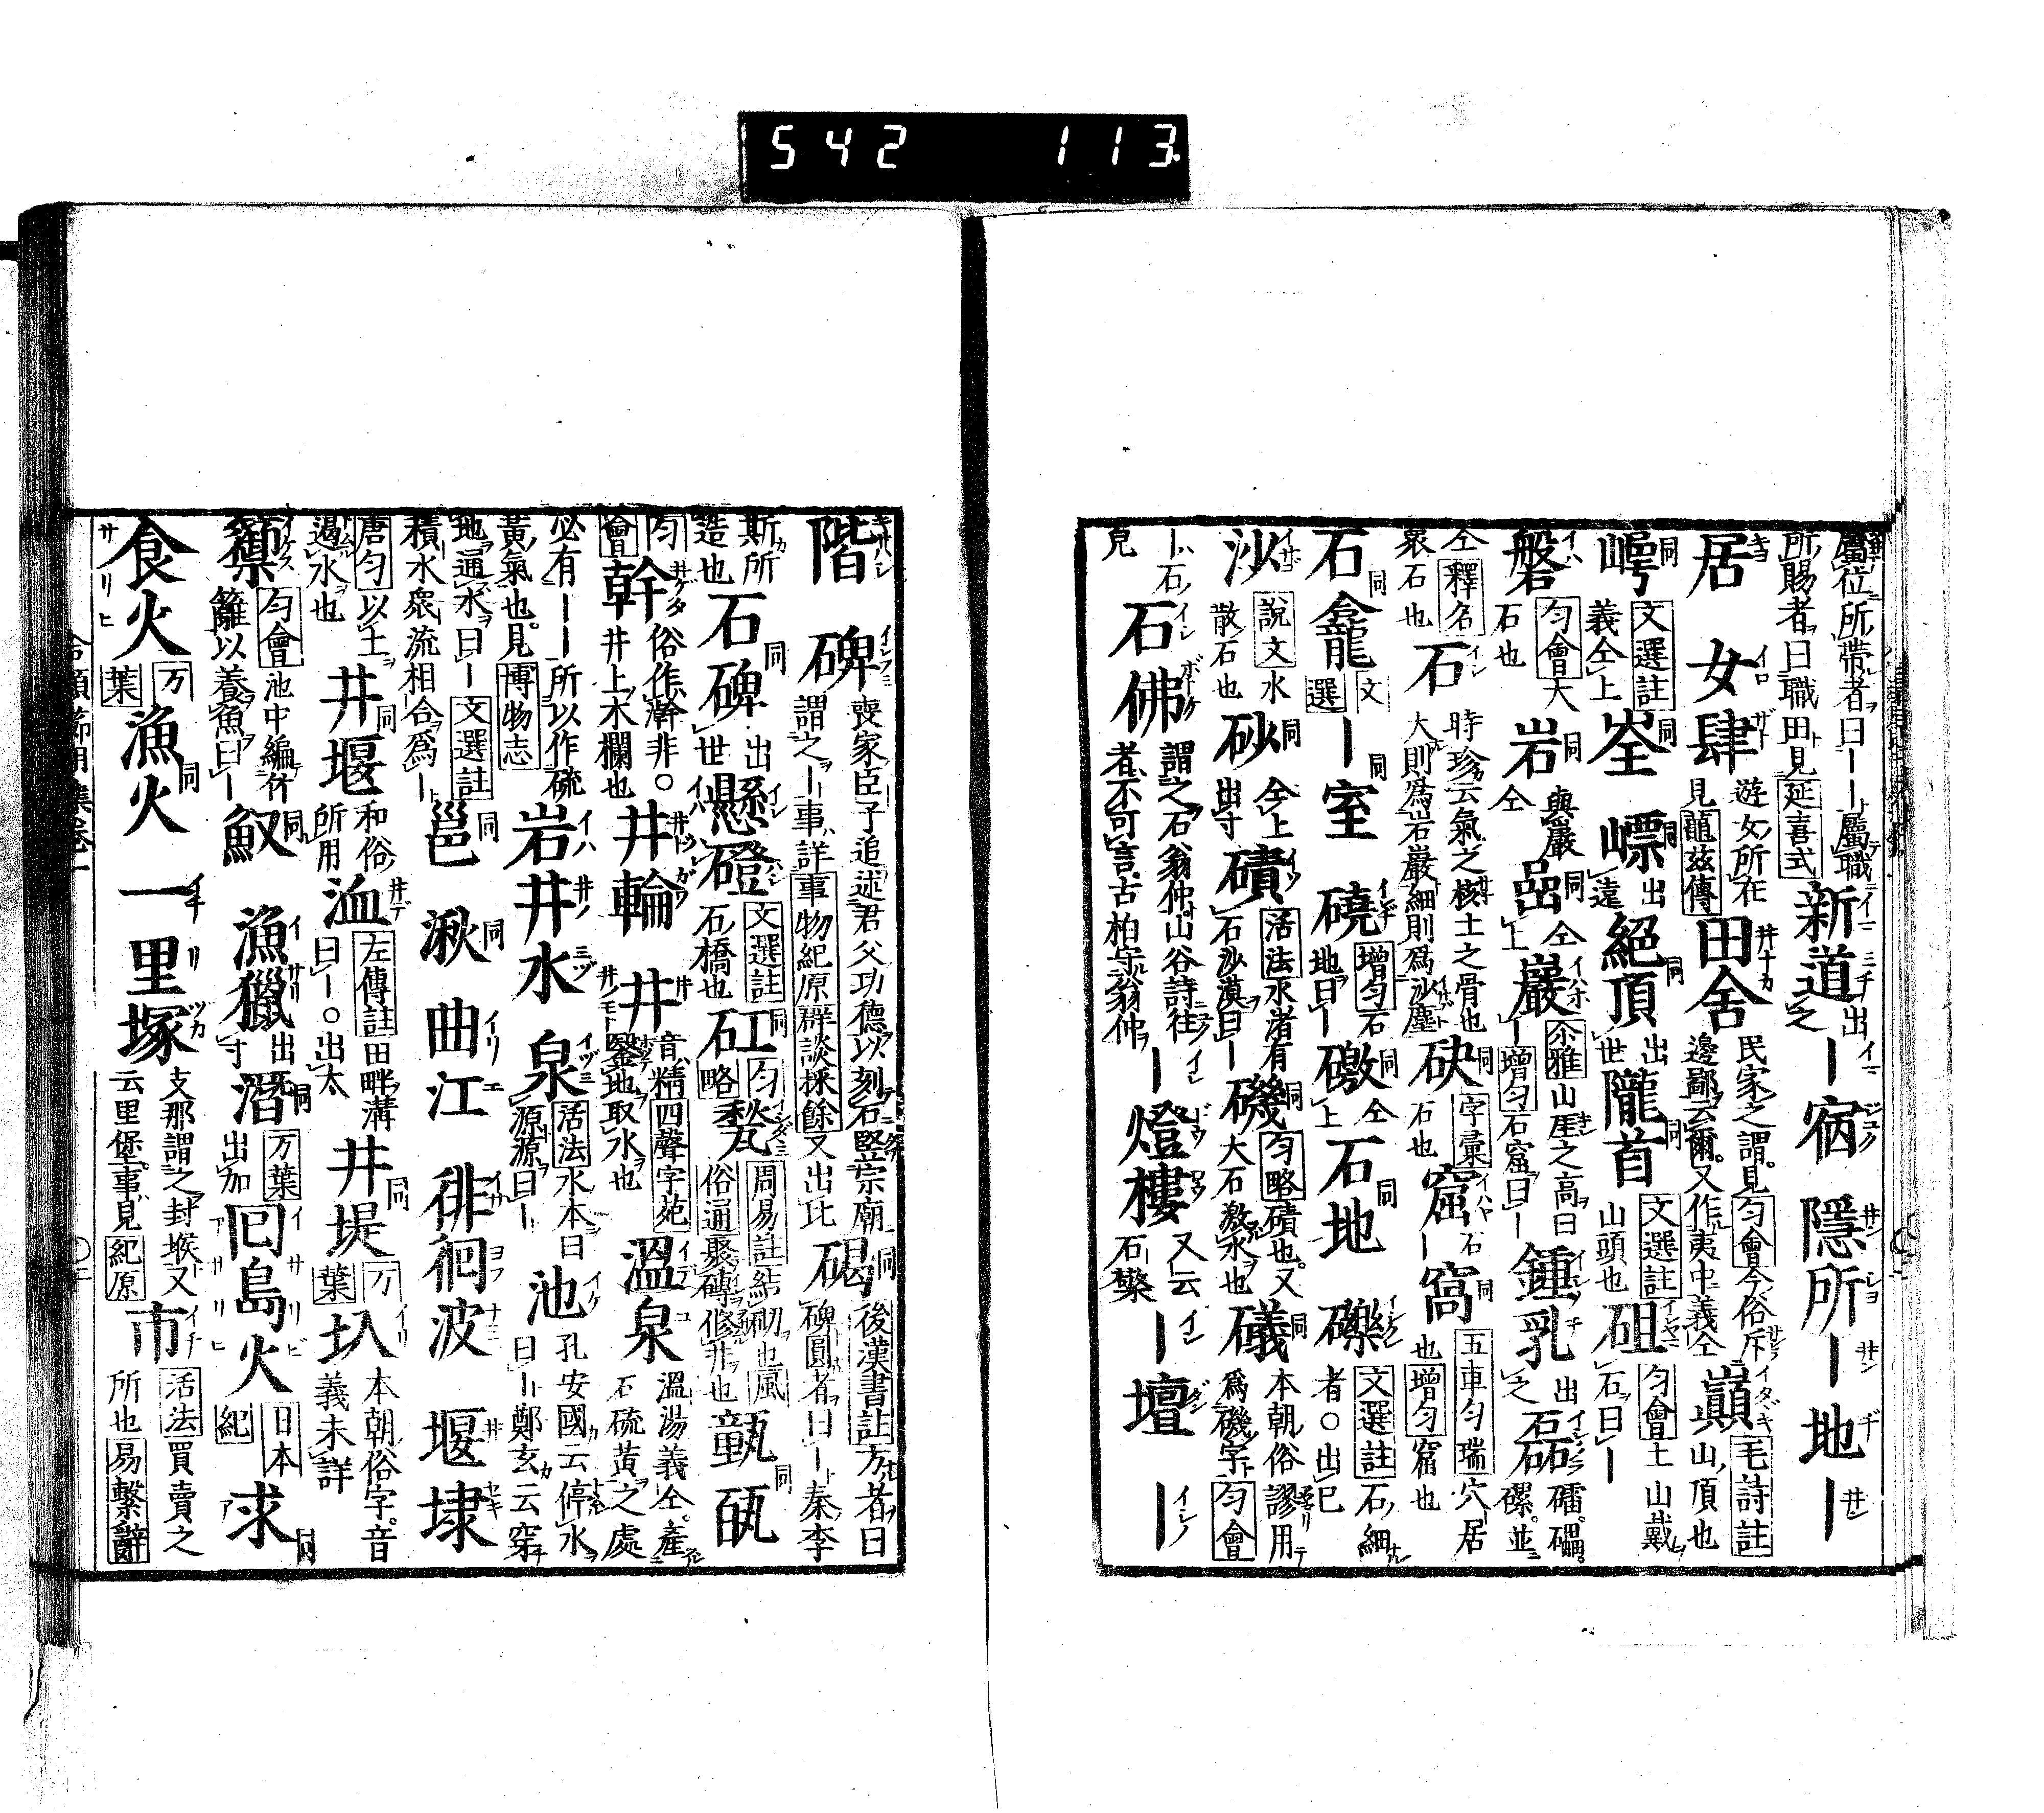 542 113.
屬位所帶者曰——屬職
所賜者曰職田見延喜式
新道出之 —宿 隱所 —地 —
居 女肆 遊女所在見龍茲傳 田舍 民家之謂見匀會今俗斥邊鄙云爾又作夷中義仝 巔 毛詩註山頂也
崿 文選註義仝上 峑 嶂 出遠 絕頂 出世 隴首 文選註山頭也 砠 匀會土山戴石曰—
磐 匀會大石也 岩 與巖仝 嵒 仝上 巖 尒雅山厓之高曰— 增匀石窟曰— 鍾乳 出之 磊 礌礧磥並仝
釋名衆石也 石 時珍云氣之核土之骨也大則為岩巖細則為沙塵 砄 字彙石也 窟 石— 窩 五車匀瑞穴居也增匀窟也
石龕 文選 —室 磽 增匀石地曰— 礉 仝上 石地 礫 文選註石細者○出巳
沙 說文水散石也 砂 仝上出寸 磧 活法水渚有石沙漠曰— 磯 匀略磧也又大石激水也 礒 本朝俗謬用為磯字匀會
—石見 石佛 謂之石翁仲山谷詩往者不可言古柏守翁仲 —燈樓 又云石檠 —壇 —
階 碑 喪家臣子追述君父功德以刻石竪宗廟謂之—事詳事物紀原群談採餘又出比 碣 後漢書註方者曰碑圓者曰—秦李
斯所造也 石碑 出世 懸磴 文選註石橋也 矼 匀略 甃 周易註結砌也風俗通聚磚修井也 䡴 瓳
匀會 幹 俗作澣非○井上木欄也 井輪 井 音精四聲字苑鑿地取水也 溫泉 溫湯義仝產石硫黃之處
必有——所以作硫黃氣也見博物志 岩井水 泉 活法水本曰源源曰— 池 孔安國云停水曰—鄭玄云穿
地通水曰—文選註積水衆流相合為— 邕 湫 曲江 徘徊波 堰埭
唐匀以土遏水也 井堰 和俗所用 洫 左傳註田畔溝曰—○出太 井堤 万葉 圦 本朝俗字音義未詳
籞 匀會池中編竹籬以養魚曰— 䱋 漁獵 出寸 潛 万葉出加 囘島火 日本紀 求
食火 万葉 漁火 一里塚 支那謂之封堠又云里堡事見紀原 市 活法買賣之所也易繫辭